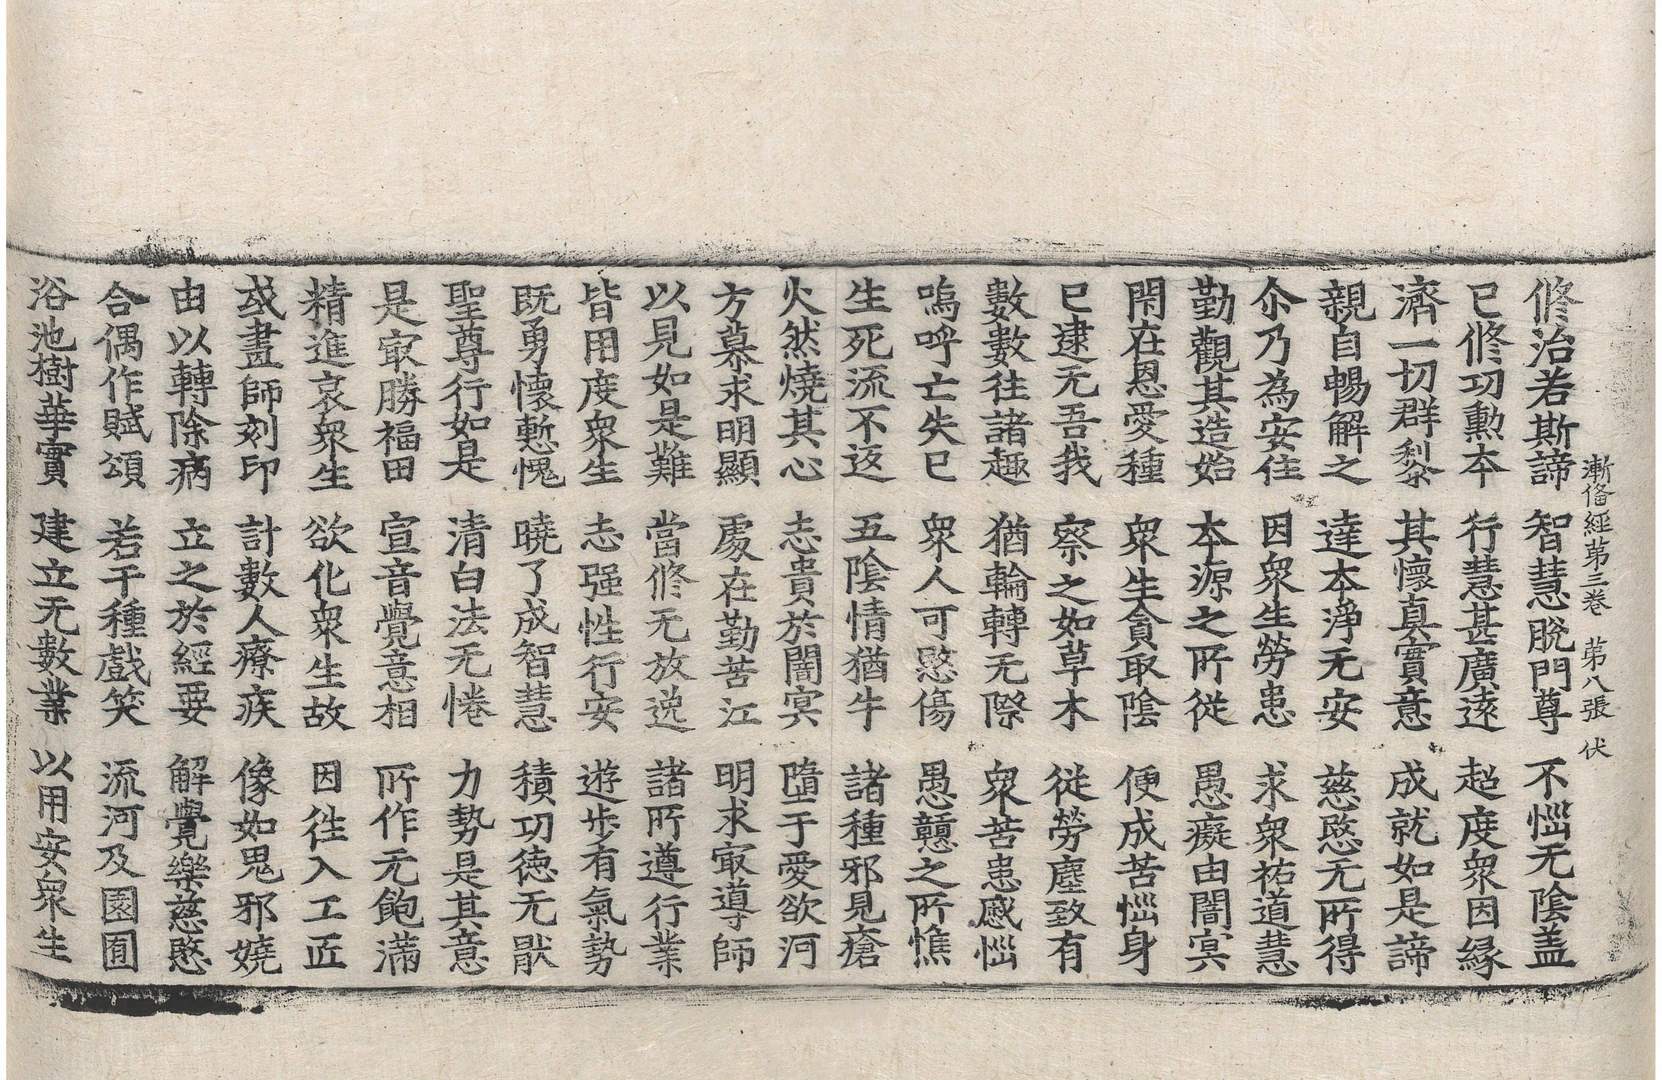 漸俻經第三卷　第八張　伏
修治若斯諦　智慧脫門尊　不𢙉无陰盖
已修功勲本　行慧甚廣遠　超度衆因縁
濟一切群黎　其懷真實意　成就如是諦
親自暢解之　達本淨无安　慈愍无所得
尒乃為安住　因衆生勞患　求衆祐道慧
勤觀其造始　本源之所從　愚癡由闇冥
閑在恩愛種　衆生貪取陰　便成苦𢙉身
已逮无吾我　察之如草木　從勞塵致有
數數往諸趣　猶輪轉无際　衆苦患慼𢙉
嗚呼亡失已　衆人可愍傷　愚戇之所憔
生死流不返　五陰情猶牛　諸種邪見瘡
火然燒其心　志貴於闇冥　墮于愛欲河
方慕求明顯　處在勤苦江　明求㝡導師
以見如是難　當修无放逸　諸所遵行業
皆用度衆生　志强性行安　遊步有氣勢
既勇懷慙愧　曉了成智慧　積功德无猒
聖尊行如是　清白法无惓　力勢是其意
是㝡勝福田　宣音覺意相　所作无飽滿
精進哀衆生　欲化衆生故　因往入工匠
或畫師刻印　計數人療疾　像如鬼邪嬈
由以轉除病　立之於經要　解覺樂慈愍
合偶作賦頌　若干種戲笑　流河及園囿
浴池樹華實　建立无數業　以用安衆生